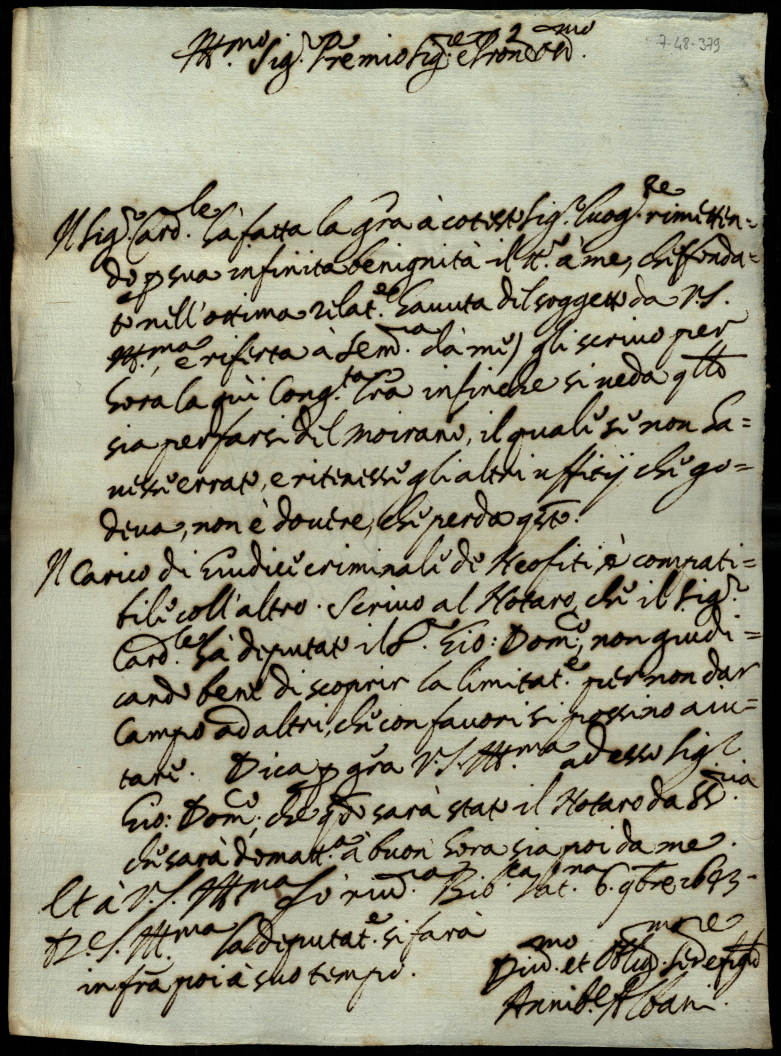 7-48-379
Ill.mo Sig.r P.re mio Sig.re e Pron Col.mo
Il Sig.r Card.le hà fatta la gr̃a à cotesto Sig.r Luog.re rimetten=
do p sua infinita benignità il tt.o à me, che fonda=
to nell'ottima relat.e havuta del soggetto da V.S.
Ill.ma, e riferta à S.Em.za dà me) gli scrivo per
hora la qui Cong.ta lr̃a infinche si veda q̃llo
sia per farsi del Moirano, il quale se non ha=
vesse errato, e ritenesse gli altri uffitij che go=
deva, non è dovere, che perda q̃sto.
Il Carico di Giudice criminale de Neofiti è compati=
bile coll'altro. Scrivo al Notaro, che il Sig.r
Card.le hà deputato il S.r Gio: Dom.co, non giudi=
cando bene di scoprir la limitat.e per non dar
Campo ad altri, che con favori si possino aiu=
tare. Dica p gr̃a V.S. Ill.ma ad esso Sig.r
Gio: Dom.co, che q̃do sarà stato il Notaro da SS.ria
che sarà domatt.a à buon hora sia poi da me.
Et à V.S. Ill.ma fò riv.za Bib.ca Vat.na 6. 9bre 1693.
D. V.S. Ill.ma la deputat.e si farà
in fr̃a poi à suo tempo.
Div.mo et Oblig.mo Ser.re
Annib.le Albani.